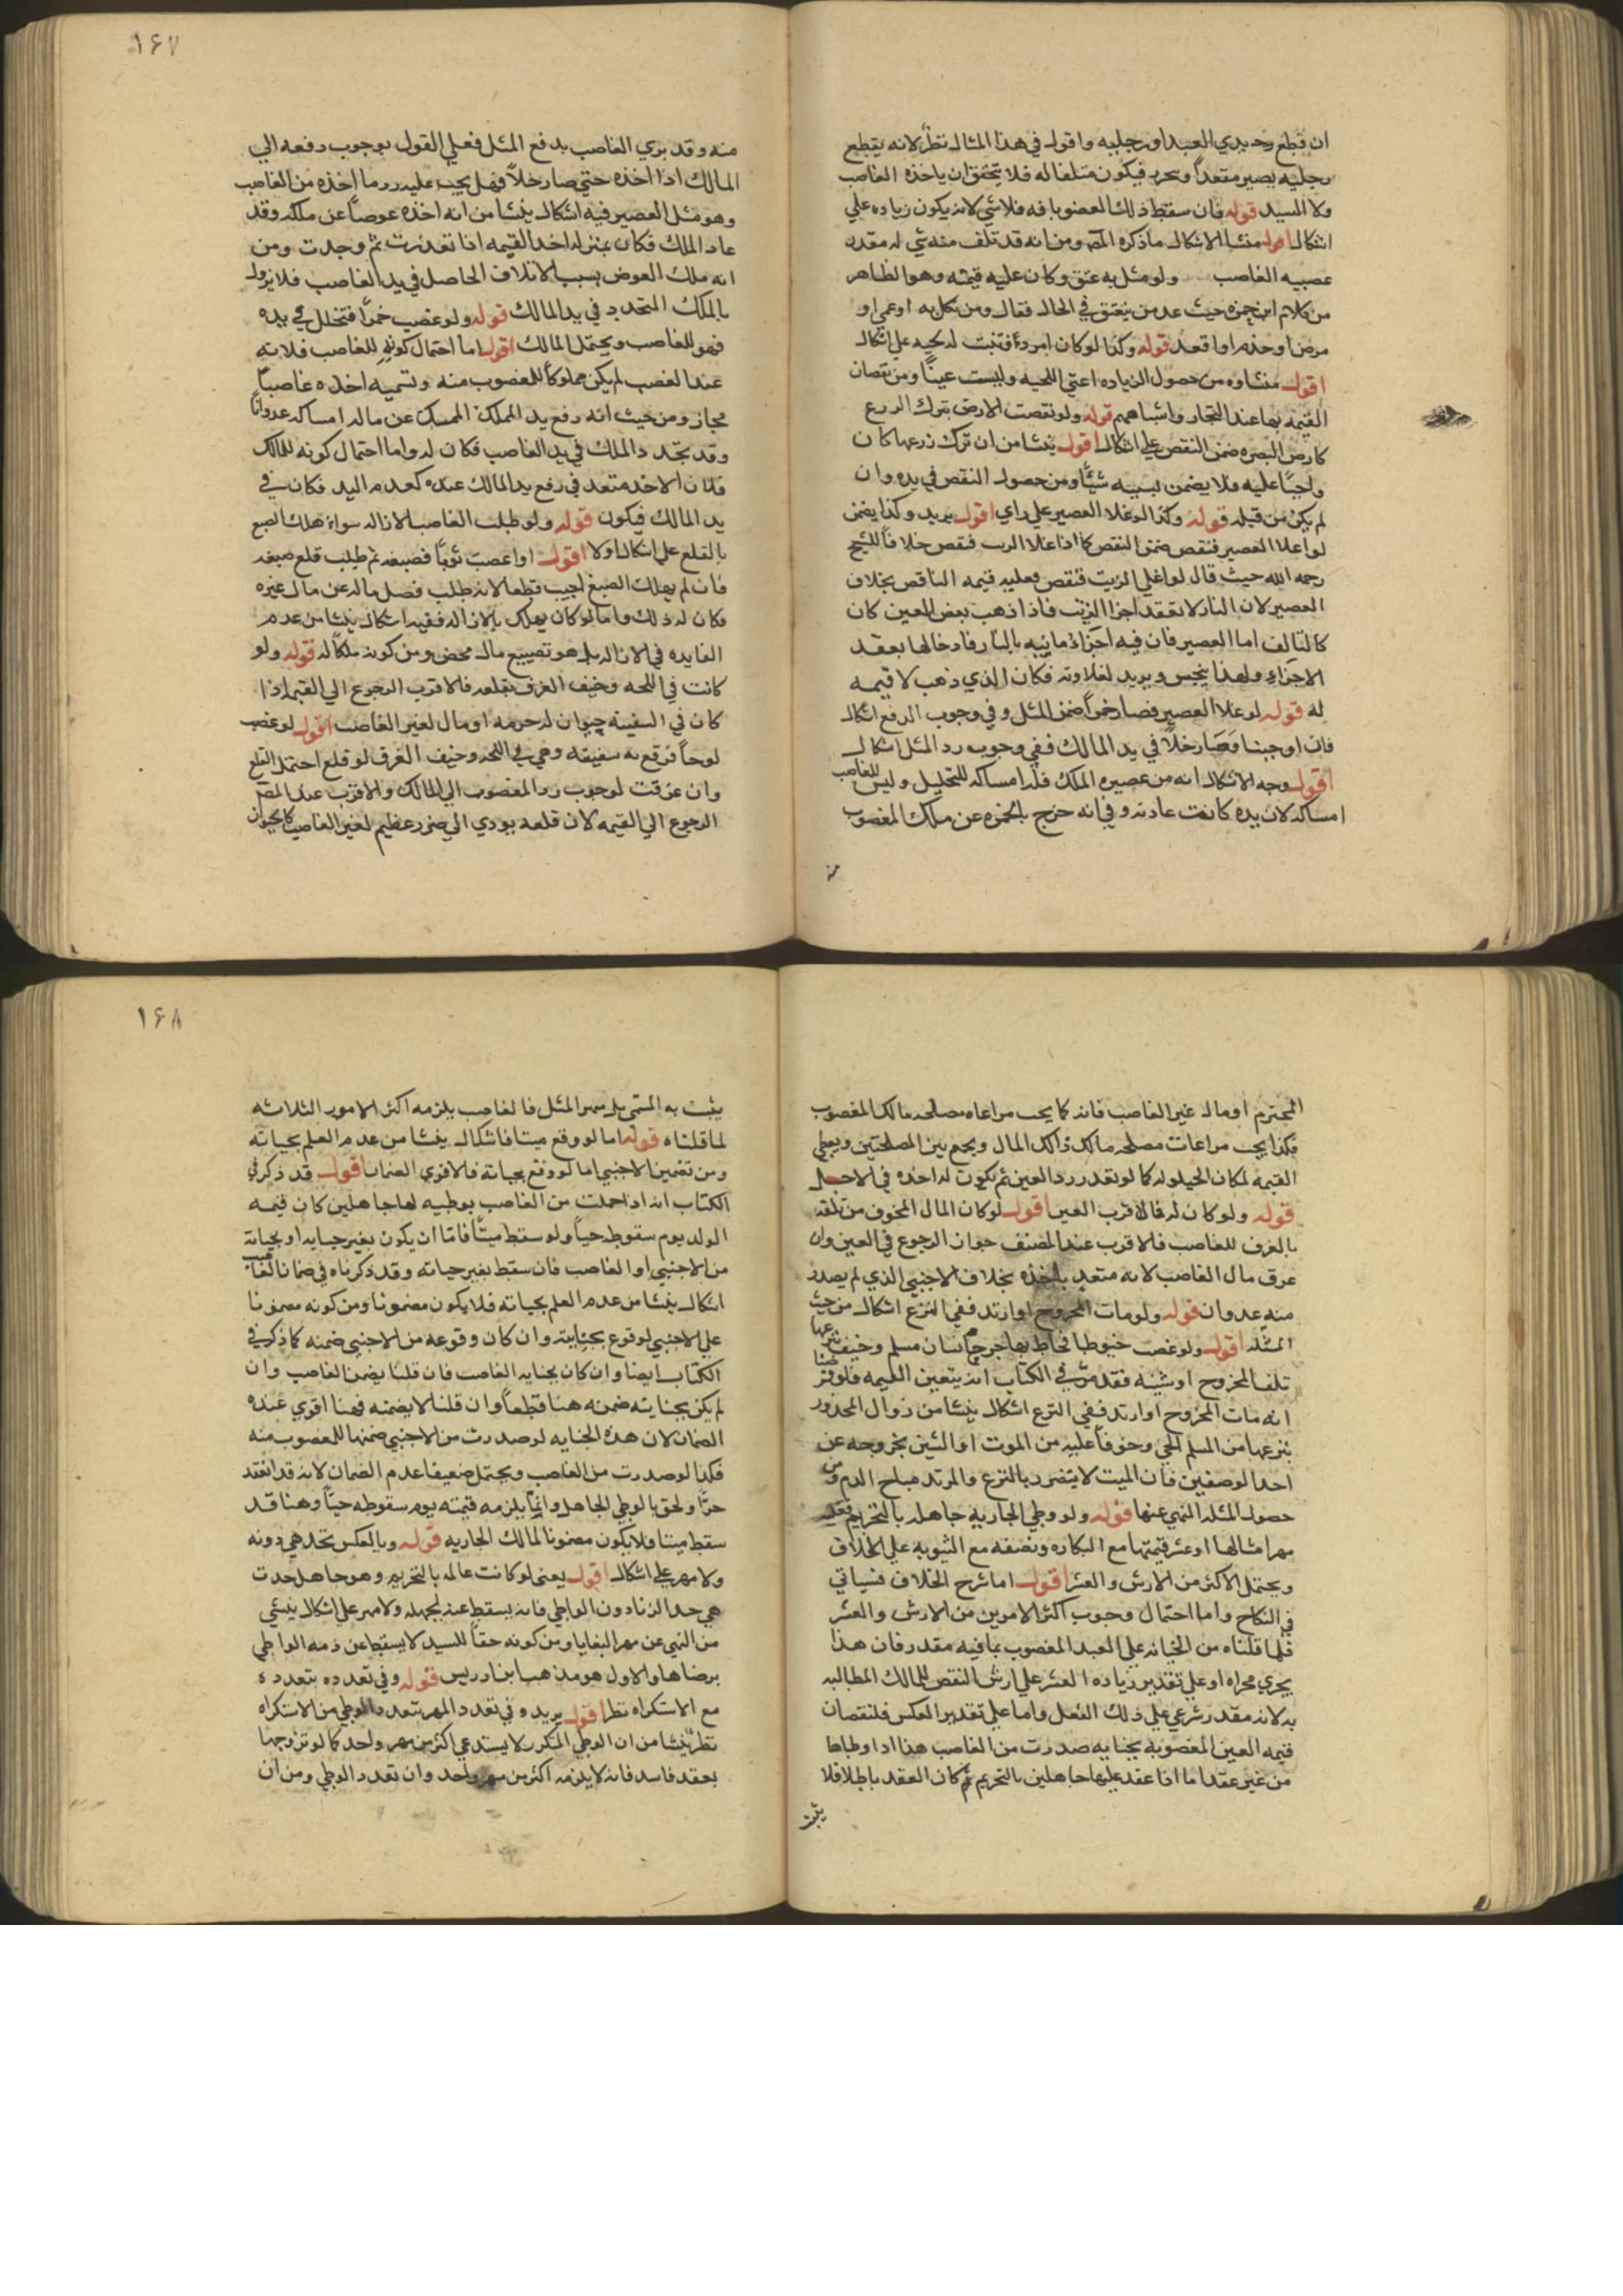 ان قطع وحد يدي العبد او رجليه واقول في هذا المثال نظر لانه بقطع
رجليه يصير مقعداً ويحرر فيكون متلفا له فلا يتحقق ان ياخذه الغاصب
ولا السيد قوله فان سقط ذلك العضو بافه فلا شي لانه يكون زياده علي
اشكال اقول منشا الاشكال ماذكره المص ومن انه قد تلف منه شي له مقدر
عصبيه الغاصب ولو مثل به عتق وكان عليه قيمته وهو الظاهر
من كلام ابن حمزه حيث عد من ينعتق في الحال فقال ومن نكل به او عمي او
مرض او جذم او اقعد قوله وكذا لو كان امرداً فنبت له لحيه علي اشكال
اقول منشاوه من حصول الزياده اعني اللحيه وليست عيباً ومن نقصان
القيمه بها عند التجار واشباههم قوله ولو نقصت الارض بترك الزرع
كارض البصره ضمن النقص علي اشكال اقول ينشا من ان ترك زرعها كان
واجباً عليه فلا يضمن بسببه شيئاً ومن حصول النقص في يده وان
لم يكن من قبله قوله وكذا لو غلا العصير علي راي اقول يريد وكذا يضمن
لو اغلا العصير فنقص ضمن النقص كما اذا غلا الرب فنقص خلافاً للشيخ
رحمه الله حيث قال لو اغلي الزيت فنقص فعليه قيمه الناقص بخلاف
العصير لان النار لا تعقد اجزا الزيت فاذا ذهب بعض العين كان
كالتالف اما العصير فان فيه اجزاء مائيه بالنار فادخالها بعقد
الاجزاء ولهذا يثخن ويزيد لغلاوته فكان الذي ذهب لا قيمه
له قوله لو غلا العصير فصار خمراً ضمن المثل وفي وجوب الدفع اشكال
فان اوجبنا فصار خلاً في يد المالك ففي وجوب رد المثل اشكال
اقول وجه الاشكال انه من عصيره الملك فله امساكه للتخليل وليس للغاصب
امساكه لان يده كانت عاديه وفي انه خرج بالخمره عن ملك المغصوب
منه
۱۶۷
منه وقد بري الغاصب بدفع المثل فعلي القول بوجوب دفعه الي
المالك اذا اخذه حتي صار خلاً فهل يجب عليه رد ما اخذه من الغاصب
وهو مثل العصير فيه اشكال ينشا من انه اخذه عوضاً عن ملكه وقد
عاد الملك فكان بمنزله اخذ القيمه اذا تعذرت ثم وجدت ومن
انه ملك العوض بسبب الاتلاف الحاصل في يد الغاصب فلا يزول
بالملك المتجدد في يد المالك قوله ولو غصب خمراً فتخلل في يده
فهو للغاصب ويحتمل المالك اقول اما احتمال كونه للغاصب فلانه
عند الغصب لم يكن مملوكاً للمغصوب منه وتسميه اخذه غاصباً
مجاز ومن حيث انه رفع يد المملك الممسك عن ماله امساكه عدواناً
وقد تجدد الملك في يد الغاصب فكان له واما احتمال كونه للمالك
فلان الاخذ متعد في رفع يد المالك عنده كعدم اليد فكان في
يد المالك فيكون قوله ولو طلب الغاصب الازاله سواء هلك الصبغ
بالقلع علي اشكال اولا اقول اذا غصب ثوباً فصبغه ثم طلب قلع صبغه
فان لم يهلك الصبغ اجيب قطعا لانه طلب فصل ماله عن مال غيره
فكان له ذلك واما لو كان يهلك بالازاله ففيه اشكال ينشا من عدم
الفايده في الازاله بل هو تضييع مال محض ومن كونه ملكاً له قوله ولو
كانت في اللجه وخيف الغرق بقلعه فالاقرب الرجوع الي القيمه اذا
كان في السفينه حيوان له حرمه او مال لغير الغاصب اقول لو غصب
لوحاً فرقع به سفينه وهي في اللجه وخيف الغرق لو قلع احتمل القلع
وان غرقت لوجوب رد المغصوب الي المالك والاقرب عند المص
الرجوع الي القيمه لان قلعه يودي الي ضرر عظيم لغير الغاصب كالحيوان
المحترم او مال غير الغاصب فانه كما يجب مراعاه مصلحه مالك المغصوب
فكذا يجب مراعات مصلحه مالك ذلك المال ويجمع بين المصلحتين ويعطي
القيمه لمكان الحيلوله كما لو تعذر رد العين ثم يكون له اخذه في الاجل
قوله ولو كان له فالاقرب العين اقول لو كان المال المخوف من تلفه
بالغرق للغاصب فالاقرب عند المصنف جواز الرجوع في العين وان
غرق مال الغاصب لانه متعد باخذه بخلاف الاجنبي الذي لم يصدر
منه عدوان قوله ولو مات المجروح او ارتد ففي النزع اشكال من حيث
المثله اقول ولو غصب خيوطا فخاط بها جرح انسان مسلم وخيف بنزعها
تلف المجروح او شينه فقد مر في الكتاب انه يتعين القيمه فلو فرضنا
انه مات المجروح او ارتد ففي النزع اشكال ينشا من زوال المحذور
بنزعها من المسلم الحي وخوفاً عليه من الموت او الشين بخروجه عن
احد الوصفين فان الميت لا يتضرر بالنزع والمرتد مباح الدم ومن
حصول المثله النهي عنها قوله ولو وطي الجاريه جاهله بالتحريم فعليه
مهر امثالها او عشر قيمتها مع البكاره ونصفه مع الثيوبه علي الخلاف
ويحتمل الاكثر من الارش والعشر اقول اما شرح الخلاف فسياتي
في النكاح واما احتمال وجوب اكثر الامرين من الارش والعشر
فلما قلناه من الجنايه علي العبد المغصوب بما فيه مقدر فان هذا
يجري مجراه او علي تقدير زياده العشر علي ارش النقص للمالك المطالبه
به لانه مقدر شرعي علي ذلك الفعل واما علي تقدير العكس فلنقصان
قيمه العين المغصوبه بجنايه صدرت من الغاصب هذا اذا وطاها
من غير عقد اما اذا عقد عليها جاهلين بالتحريم ثم كان العقد باطلا فلا
يثبت
۱۶۸
يثبت به المسمي بل مهر المثل فالغاصب يلزمه اكثر الامور الثلاثه
لما قلناه قوله اما لو وقع ميتا فاشكال ينشا من عدم العلم بحياته
ومن تضمين الاجنبي اما لو وقع بجنايه فالاقوي الضمان اقول قد ذكر في
الكتاب انه اذا حملت من الغاصب بوطيه لها جاهلين كان قيمه
الولد يوم سقوطه حياً ولو سقط ميتاً فاما ان يكون بغير جنايه او بجنايه
من الاجنبي او الغاصب فان سقط بغير جنايه وقد ذكرناه في ضمان الغاصب
اشكال ينشا من عدم العلم بحياته فلا يكون مضمونا ومن كونه مضمونا
علي الاجنبي لو وقع بجنايته وان كان وقوعه من الاجنبي ضمنه كما ذكر في
الكتاب ايضا وان كان بجنايه الغاصب فان قلنا يضمن الغاصب وان
لم يكن بجنايته ضمنه هنا قطعاً وان قلنا لا يضمنه فهنا اقوي عنده
الضمان لان هذه الجنايه لو صدرت من الاجنبي ضمنها للمغصوب منه
فكذا لو صدرت من الغاصب ويحتمل ضعيفا عدم الضمان لانه قد انعقد
حرّاً ولحق بالوطي الجاهل وانما يلزمه قيمته يوم سقوطه حيّاً وهنا قد
سقط ميتا فلا يكون مضمونا لمالك الجاريه قوله وبالعكس تحد هي دونه
ولا مهر علي اشكال اقول يعني لو كانت عالمه بالتحريم وهو جاهل حدت
هي حد الزنا دون الواطي فانه يسقط عنه لجهله ولا مهر علي اشكال ينشي
من النهي عن مهر البغايا ومن كونه حقاً للسيد لا يسقط عن ذمه الواطي
برضاها والاول هو مذهب ابن ادريس قوله وفي تعدده بتعدده
مع الاستكراه نظر اقول يريد وفي تعدد المهر بتعدد الوطي من الاستكراه
نظر ينشا من ان الوطي المتكرر لا يستدعي اكثر من مهر واحد كما لو تزوجها
بعقد فاسد فانه لا يلزمه اكثر من مهر واحد وان تعدد الوطي ومن ان